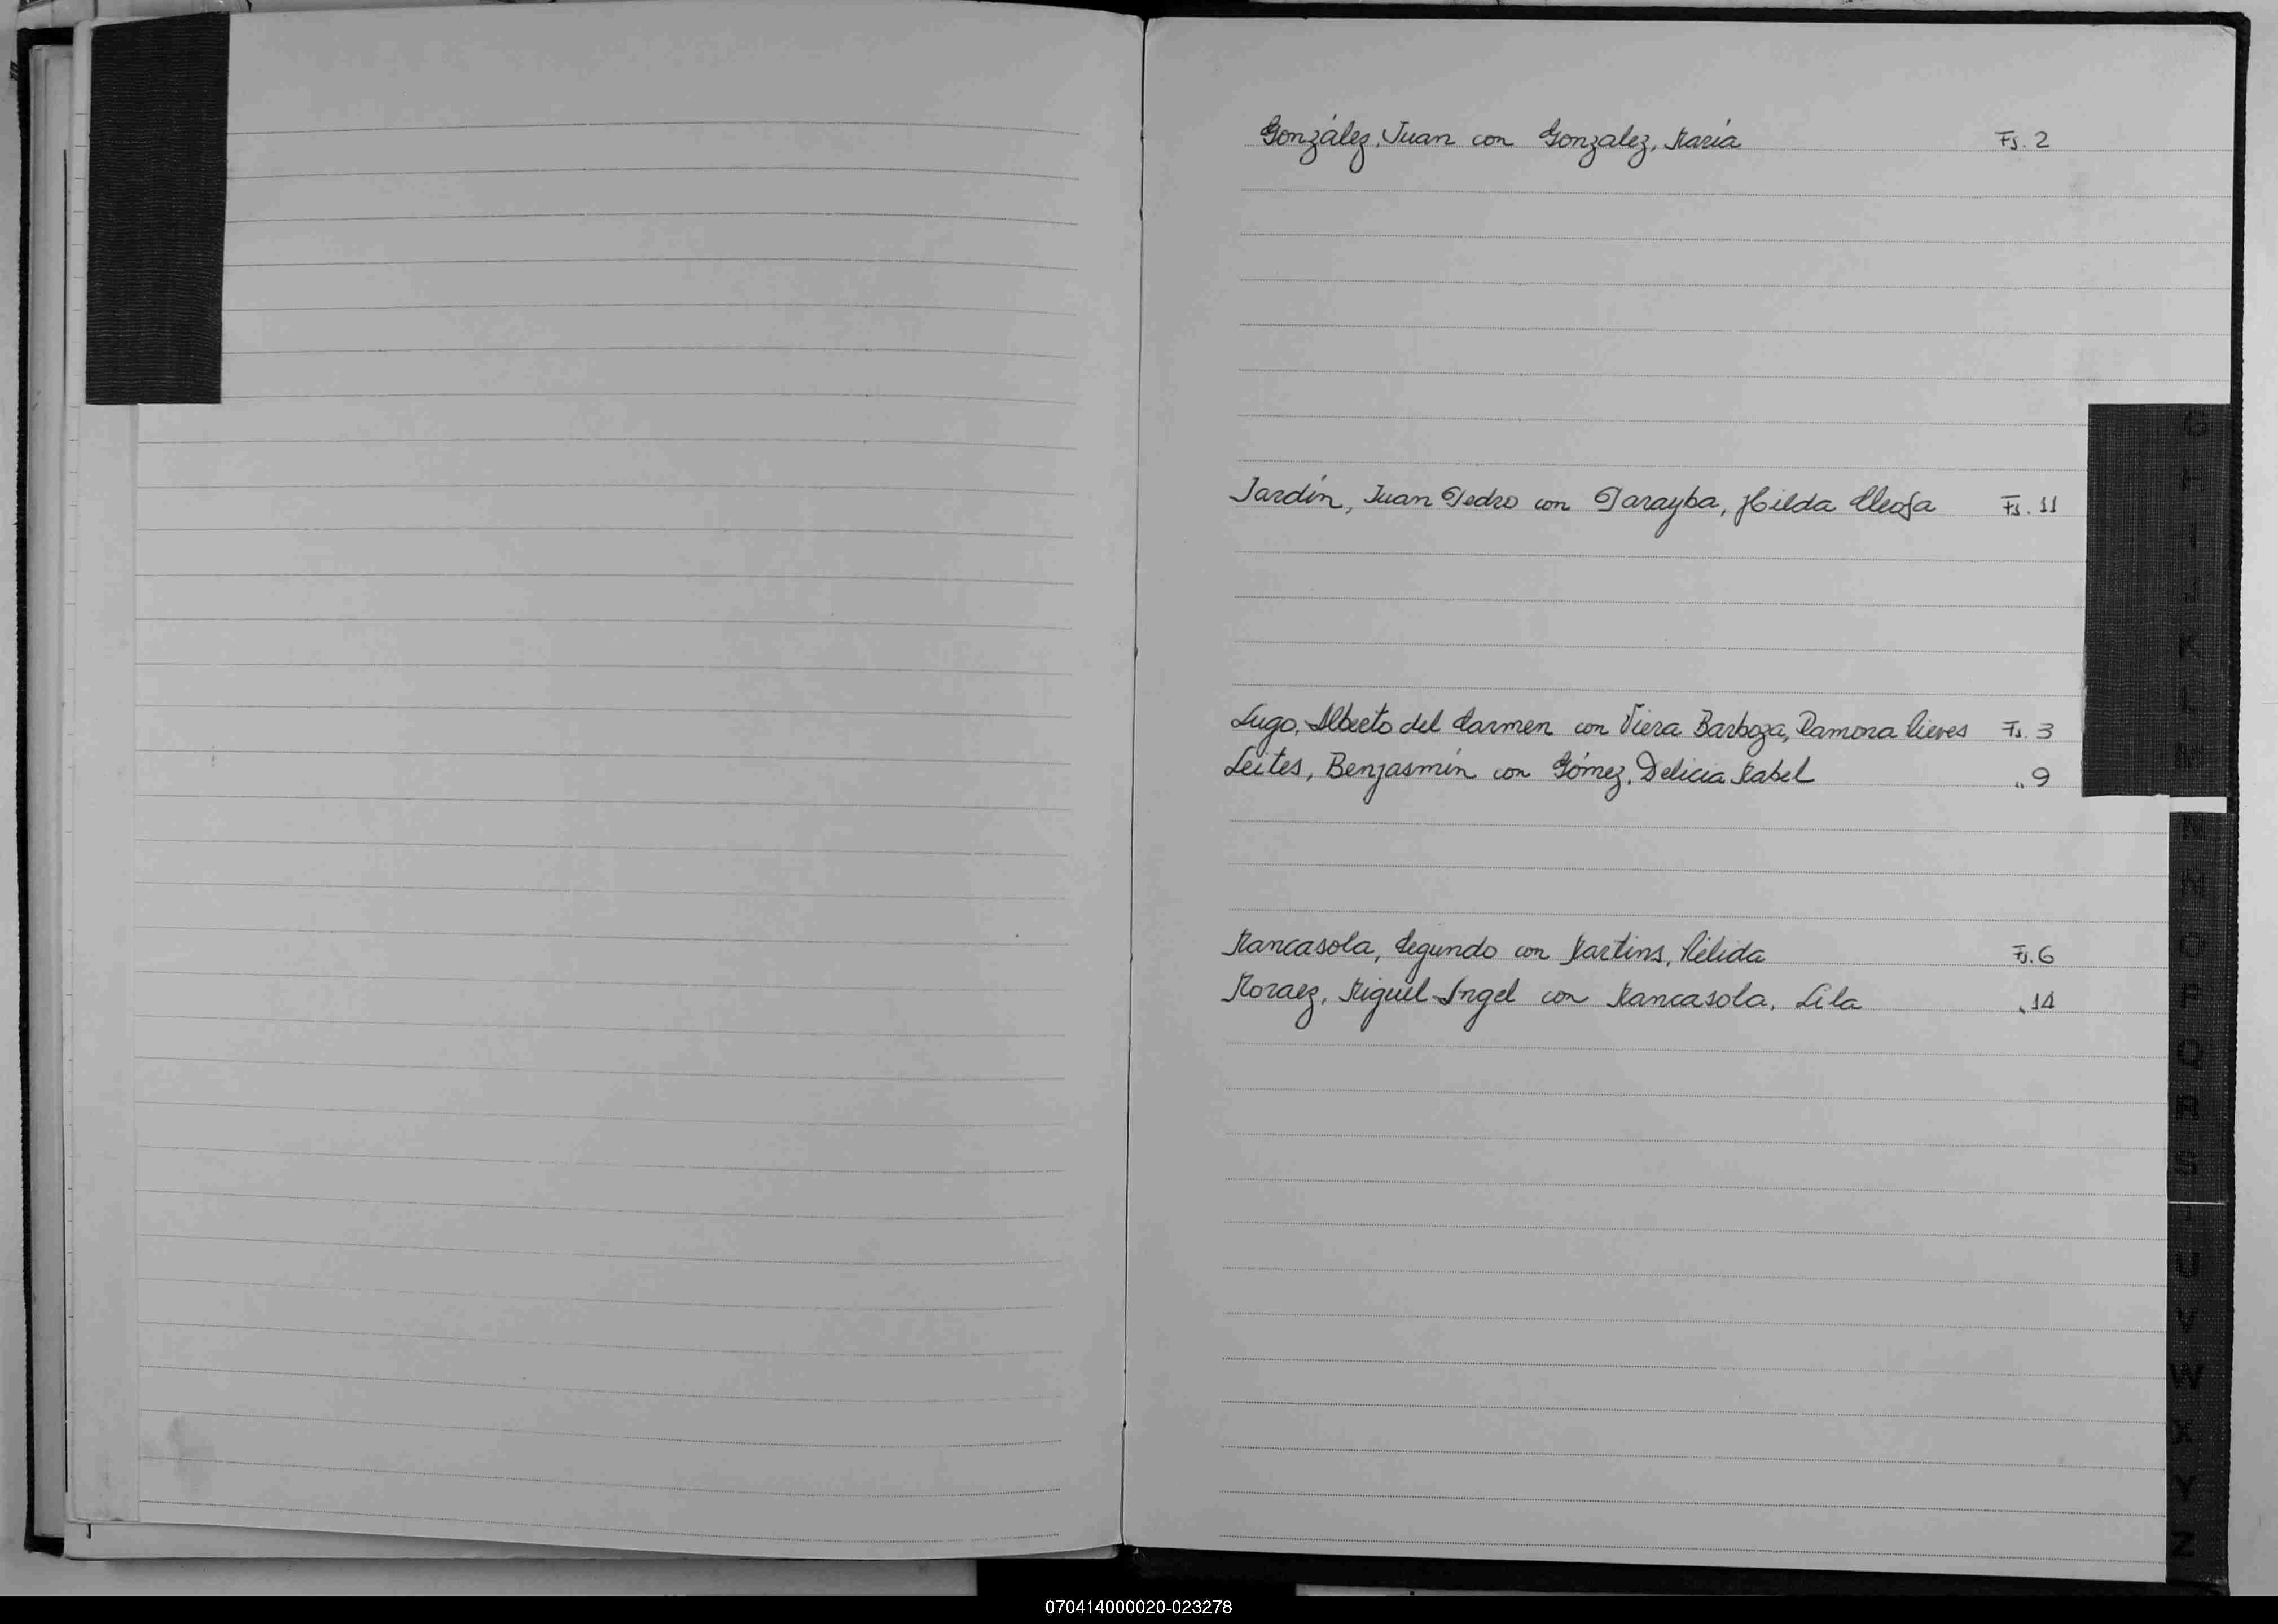 González, Juan con Gonzalez, María Fs. 2
Jardín, Juan Pedro con Parayba, Hilda Cleofa Fs. 11
Lugo, Alberto del Carmen con Viera Barboza, Ramona Nieves Fs. 3
Leites, Benjasmín con Gómez, Delicia Mabel " 9
Mancasola, Segundo con Martins, Nélida Fs. 6
Moraez, Miguel Angel con Mancasola, Lila " 14
G
H
I
J
K
L
M
N
Ñ
O
P
Q
R
S
T
U
V
W
X
Y
Z
070414000020-023278